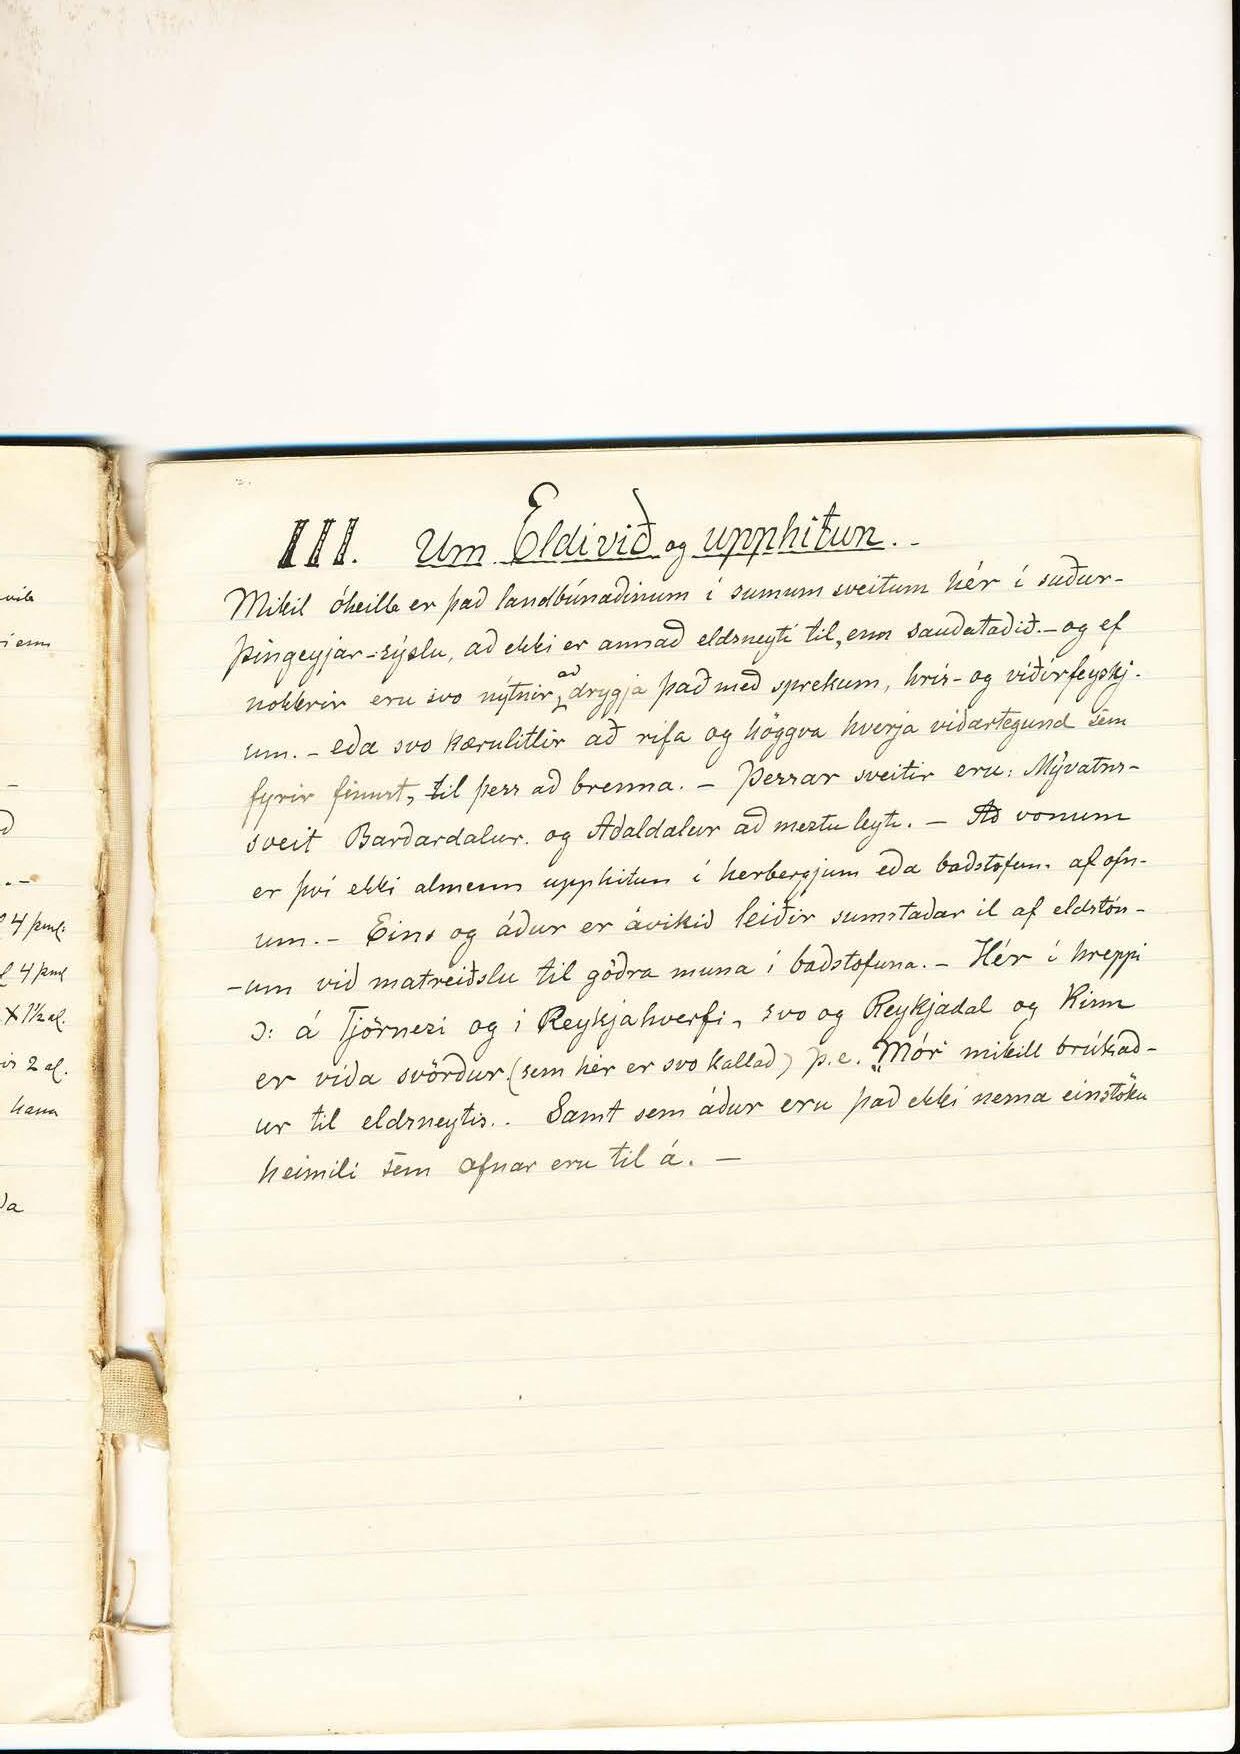 III. Um Eldivið og upphitun. –
Mikil óheill er það landbúnaðinum í sumum sveitum hér í suður-
þingeyjar-sýslu, að ekki er annað eldsneyti til, enn sauðataðið. – og ef
nokkrir eru svo nýtnir að drygja það með sprekum, hrís- og viðirfeyskj-
um. – eða svo kærulitlir að rifa og höggva hverja viðartegund sem
fyrir finnst, til þess að brenna. – Þessar sveitir eru: Mývatns-
sveit Barðardalur. og Aðaldalur að mestu leyti. – Að vonum
er því ekki almenn upphitun í herbergjum eða baðstofum. af ofn-
um. – Eins og áður er ávikið leiðir sumstaðar il af eldstón-
-um við matreiðslu til góðra muna í baðstofuna. – Hér í hreppi
ɔ: á Tjörnesi og í Reykjahverfi, svo og Reykjadal og Kinn
er víða svörður (sem hér er svo kallað) þ.e. „Mór“ mikill brúkað-
ur til eldsneytis.. Samt sem áður eru það ekki nema einstöku
heimili sem ofnar eru til á. –
í enn
–
ð
. –
4 þml.
4 þml
x 1½ al.
2 al.
hana
ða